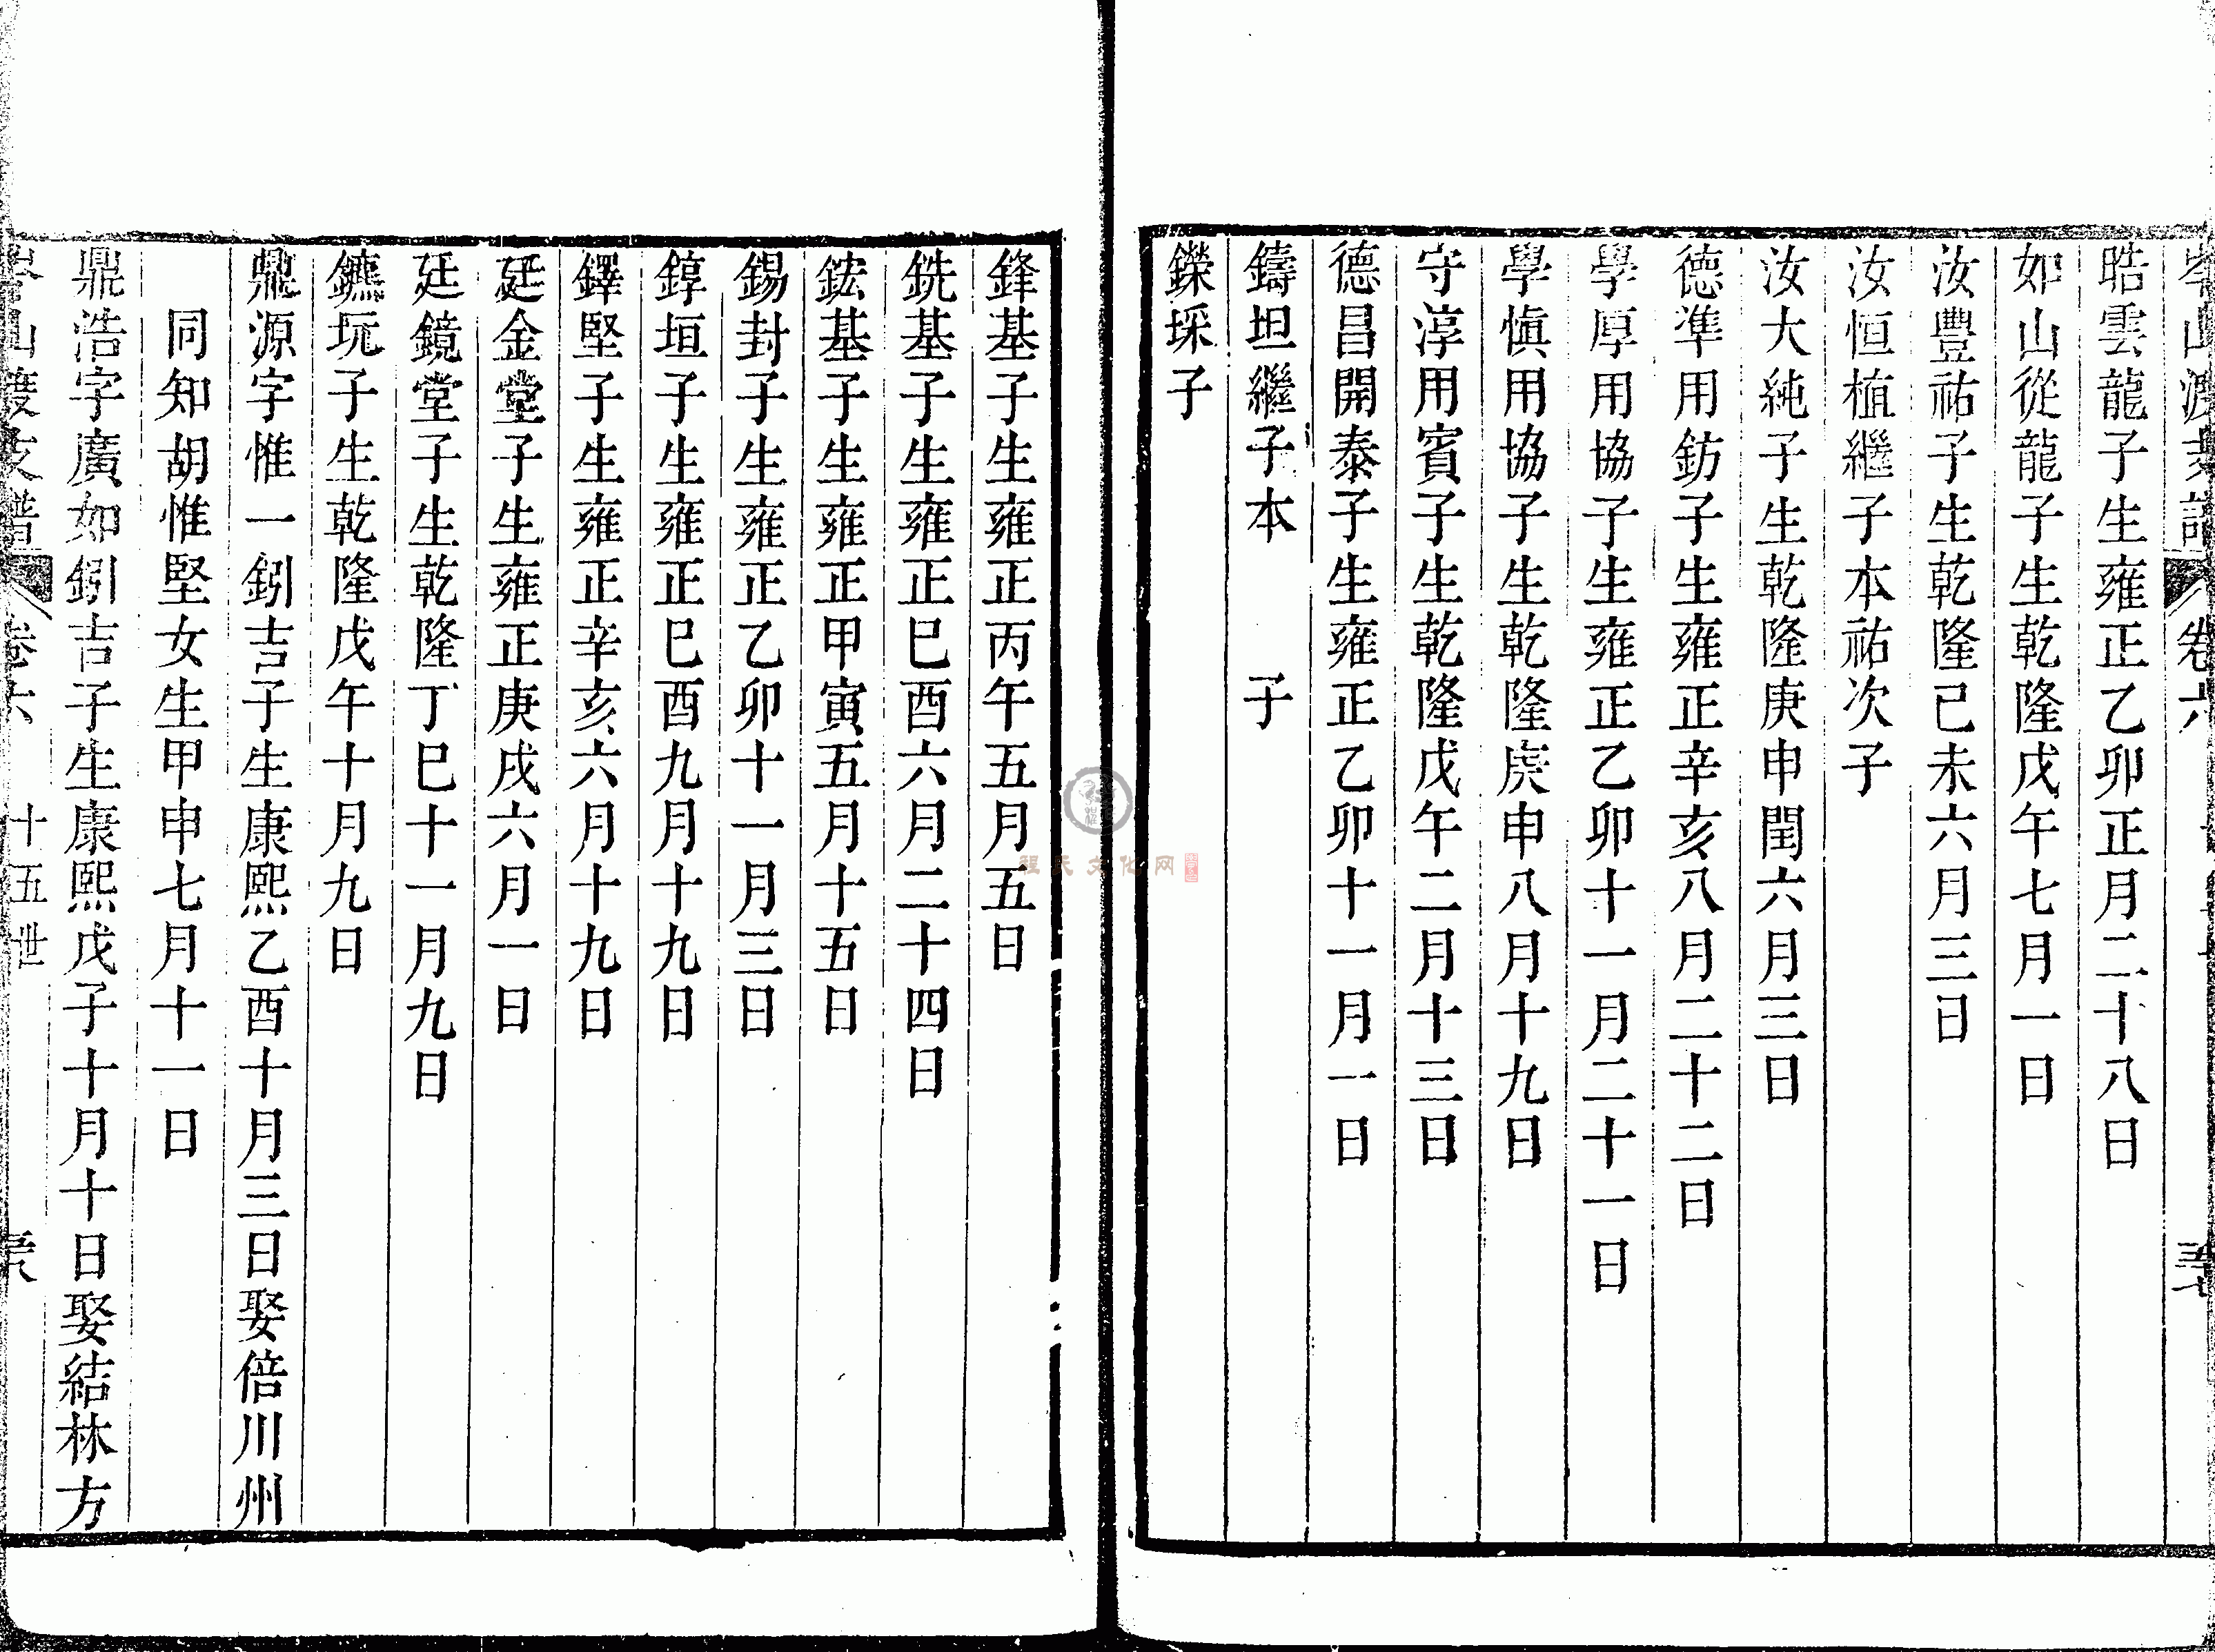 岑山渡支譜 卷六
晧雲龍子生雍正乙卯正月二十八日
如山從龍子生乾隆戊午七月一日
汝豐祐子生乾隆己未六月三日
汝恒植繼子本祐次子
汝大純子生乾隆庚申閏六月三日
德準用鈁子生雍正辛亥八月二十二日
學厚用協子生雍正乙卯十一月二十一日
學慎用協子生乾隆庚申八月十九日
守淳用賓子生乾隆戊午二月十三日
德昌開泰子生雍正乙卯十一月一日
鑄坦繼子本 子
鑅埰子
鋒基子生雍正丙午五月五日
銑基子生雍正巳酉六月二十四日
鋐基子生雍正甲寅五月十五日
錫封子生雍正乙卯十一月三日
錞垣子生雍正巳酉九月十九日
鐸堅子生雍正辛亥六月十九日
廷金堂子生雍正庚戌六月一日
廷鏡堂子生乾隆丁巳十一月九日
鑣坃子生乾隆戊午十月九日
鼎源字惟一釰吉子生康熙乙酉十月三日娶倍川州
同知胡惟堅女生甲申七月十一日
鼎浩字廣如釰吉子生康熙戊子十月十日娶結林方
岑山渡支譜 卷六 十五世
程氏文化网